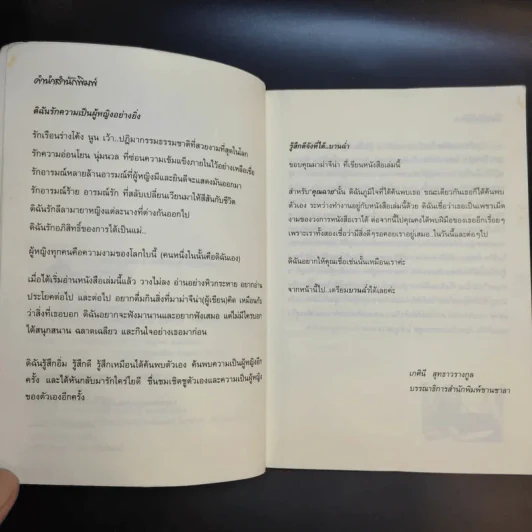 คำนำสำนักพิมพ์
ดิฉันรักความเป็นผู้หญิงอย่างยิ่ง
รักเรือนร่างโค้ง นูน เว้า..ปฏิมากรรมธรรมชาติที่สวยงามที่สุดในโลก
รักความอ่อนโยน นุ่มนวล ที่ซ่อนความเข้มแข็งภายในไว้อย่างเหลือเชื่อ
รักอารมณ์หลายล้านอารมณ์ที่ผู้หญิงมีและยินดีจะแสดงมันออกมา
รักอารมณ์ร้าย อารมณ์รัก ที่สลับเปลี่ยนเวียนมาให้สีสันกับชีวิต
ดิฉันรักลีลามายาหญิงแต่ละนางที่ต่างกันออกไป
ดิฉันรักอภิสิทธิ์ของการได้เป็นแม่..
ผู้หญิงทุกคนคือความงามของโลกใบนี้ (คนหนึ่งในนั้นคือดิฉันเอง)
เมื่อได้เริ่มอ่านหนังสือเล่มนี้แล้ว วางไม่ลง อ่านอย่างหิวกระหาย อยากอ่าน
ประโยคต่อไป และต่อไป อยากดื่มกินสิ่งที่มาม่าจีน่า(ผู้เขียน)คิด เหมือนกับ
ว่าสิ่งที่เธอบอก ดิฉันอยากจะฟังมานานและอยากฟังเสมอ แต่ไม่มีใครบอก
ได้สนุกสนาน ฉลาดเฉลียว และกินใจอย่างเธอมาก่อน
ดิฉันรู้สึกอิ่ม รู้สึกดี รู้สึกเหมือนได้ค้นพบตัวเอง ค้นพบความเป็นผู้หญิงอีก
ครั้ง และได้หันกลับมารักใคร่ไยดี ชื่นชมเชิดชูตัวเองและความเป็นผู้หญิง
ของตัวเองอีกครั้ง
รู้สึกดีจังที่ได้..บานฉ่ำ
ขอบคุณมาม่าจีน่า ที่เขียนหนังสือเล่มนี้
สำหรับ"คุณฉาย"นั้น ดิฉันภูมิใจที่ได้ค้นพบเธอ ขณะเดียวกันเธอก็ได้ค้นพบ
ตัวเอง ระหว่างทำงานอยู่กับหนังสือเล่มนี้ด้วย ดิฉันเชื่อว่าเธอเป็นเพชรเม็ด
งามของวงการหนังสือเราได้ ต่อจากนี้ไปคุณคงได้พบฝีมือของเธออีกเรื่อยๆ
เพราะเราทั้งสองเชื่อว่ามีสิ่งดีๆรอคอยเราอยู่เสมอ..ในวันนี้และต่อๆไป
ดิฉันอยากให้คุณเชื่อเช่นนั้นเหมือนเราค่ะ
จากหน้านี้ไป..เตรียมบานฉ่ำได้เลยค่ะ
เกศินี สุทธาวรางกูล
บรรณาธิการสำนักพิมพ์ชานชาลา